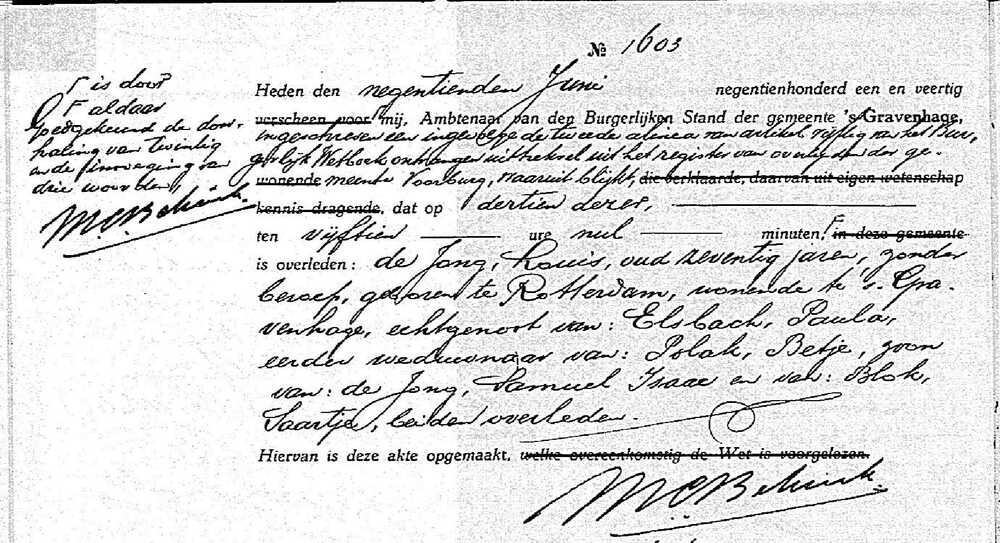 № 1603
Γ is door
F aldaar
Goedgekeurd de door-
haling van twintig
en de invoeging van
drie woorden,
Heden den negentienden Juni negentienhonderd een en veertig
verscheen voor mij, Ambtenaar van den Burgerlijken Stand der gemeente 's Gravenhage,
ingeschreven een ingevolge de tweede alinea van artikel vijftig van het Bur-
gerlijk Wetboek ontvangen uittreksel uit het register van overlijden der ge-
wonende meente Voorburg, waaruit blijkt, die verklaarde, daarvan uit eigen wetenschap
kennis dragende, dat op dertien dezer,
ten vijftien ure nul minuten, F in deze gemeente
is overleden: de Jong, Louis, oud zeventig jaren, zonder
beroep, geboren te Rotterdam, wonende te 's-Gra-
venhage, echtgenoot van: Elsbach, Paula,
eerder weduwnaar van: Polak, Betje, zoon
van: de Jong, Samuel Isaac en van: Blok,
Saartje, beiden overleden.
Hiervan is deze akte opgemaakt, welke overeenkomstig de Wet is voorgelezen.